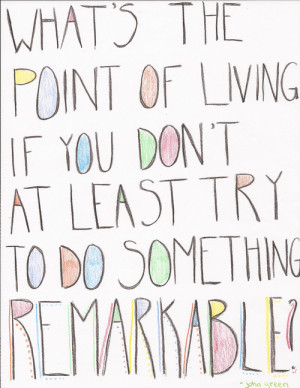 WHAT'S THE
POINT OF LIVING
IF YOU DON'T
AT LEAST TRY
TO DO SOMETHING
REMARKABLE?
- john green